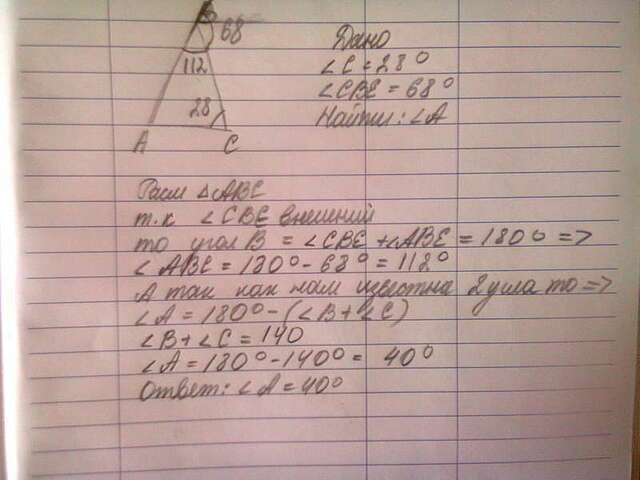 B
68
112
28
A
C
Дано
∠C = 28°
∠CBE = 68°
Найти: ∠A
Расм △ABC
т.к ∠CBE внешний
то угол B = ∠CBE + ∠ABE = 180° =>
∠ABE = 180° - 68° = 112°
А так как нам известна 2 угла то =>
∠A = 180° - (∠B + ∠C)
∠B + ∠C = 140
∠A = 180° - 140° = 40°
Ответ: ∠A = 40°